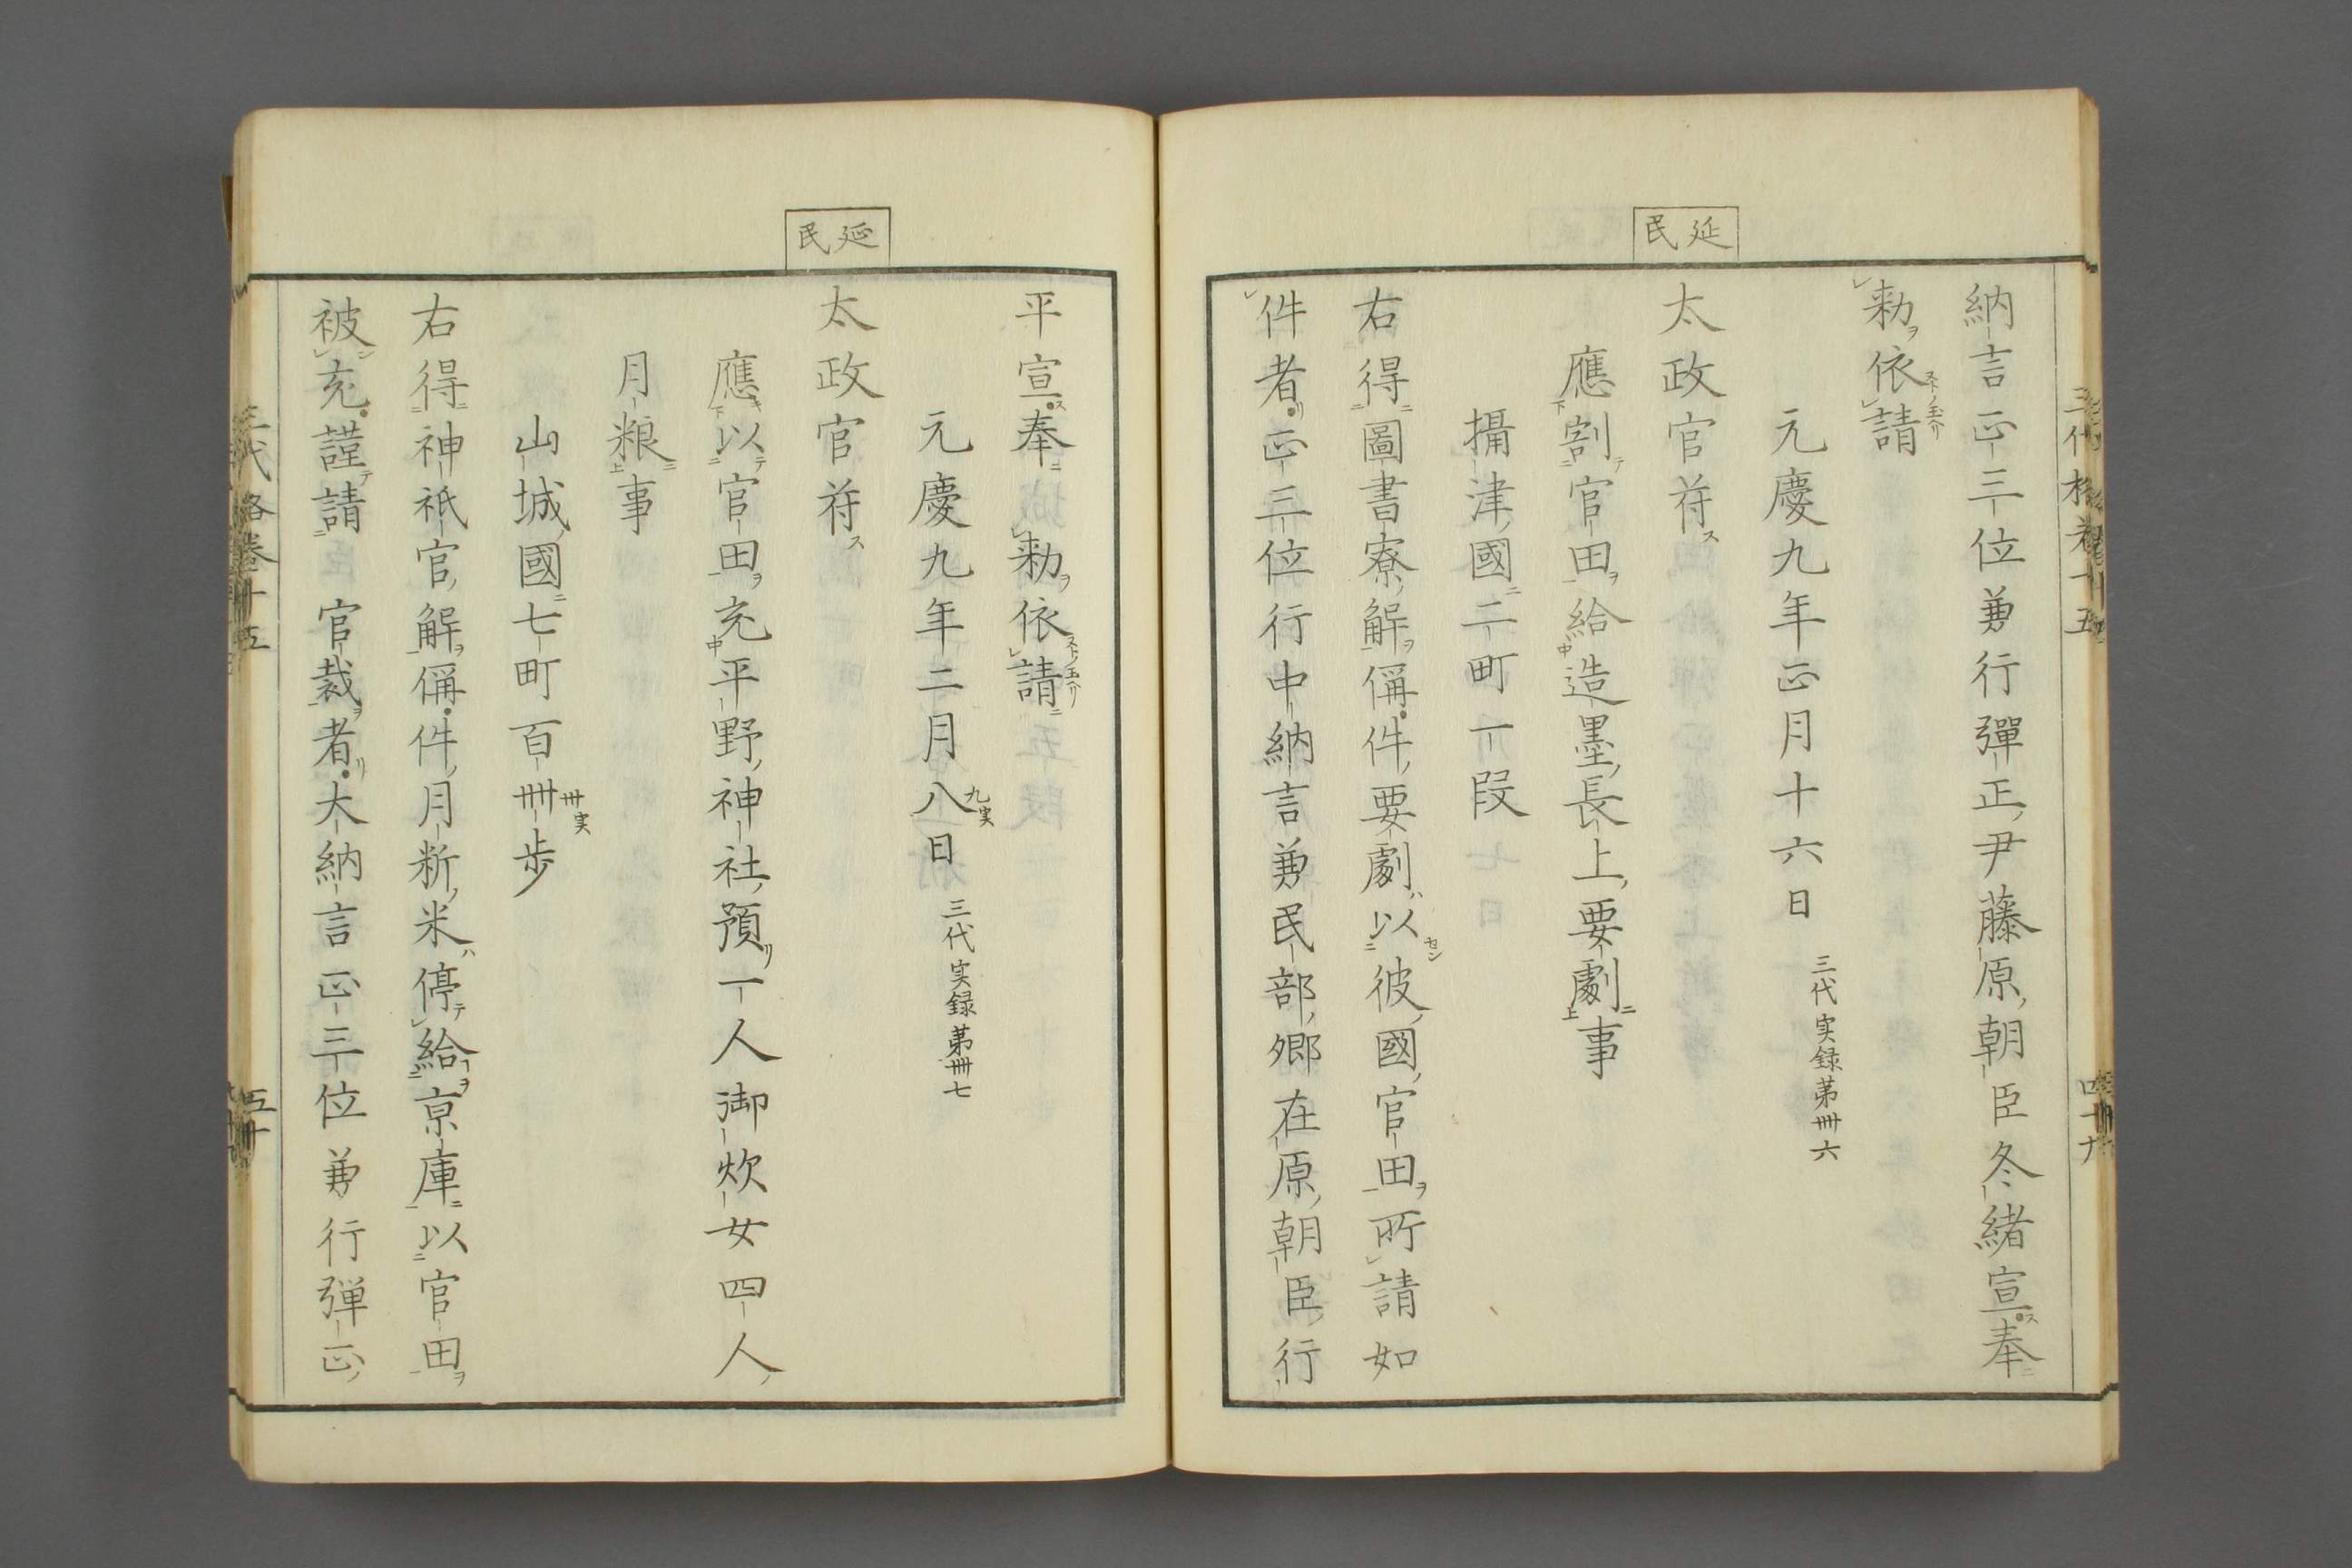 延民
納言正三位兼行彈正尹藤原朝臣冬緒宣奉
勅依請
元慶九年正月十六日 三代実録第卌六
太政官符
應割官田給造墨長上要劇事
攝津國二町一段
右得圖書寮解偁件要劇以彼國官田所請如
件者正三位行中納言兼民部卿在原朝臣行
延民
平宣奉勅依請
元慶九年二月八日 三代実録第卌七
九実
太政官符
應以官田充平野神社預一人御炊女四人
月粮事
山城國七町百卌歩
卅実
右得神祇官解偁件月䉼米停給京庫以官田
被充謹請 官裁者大納言正三位兼行弾正
三代格卷十五
五十